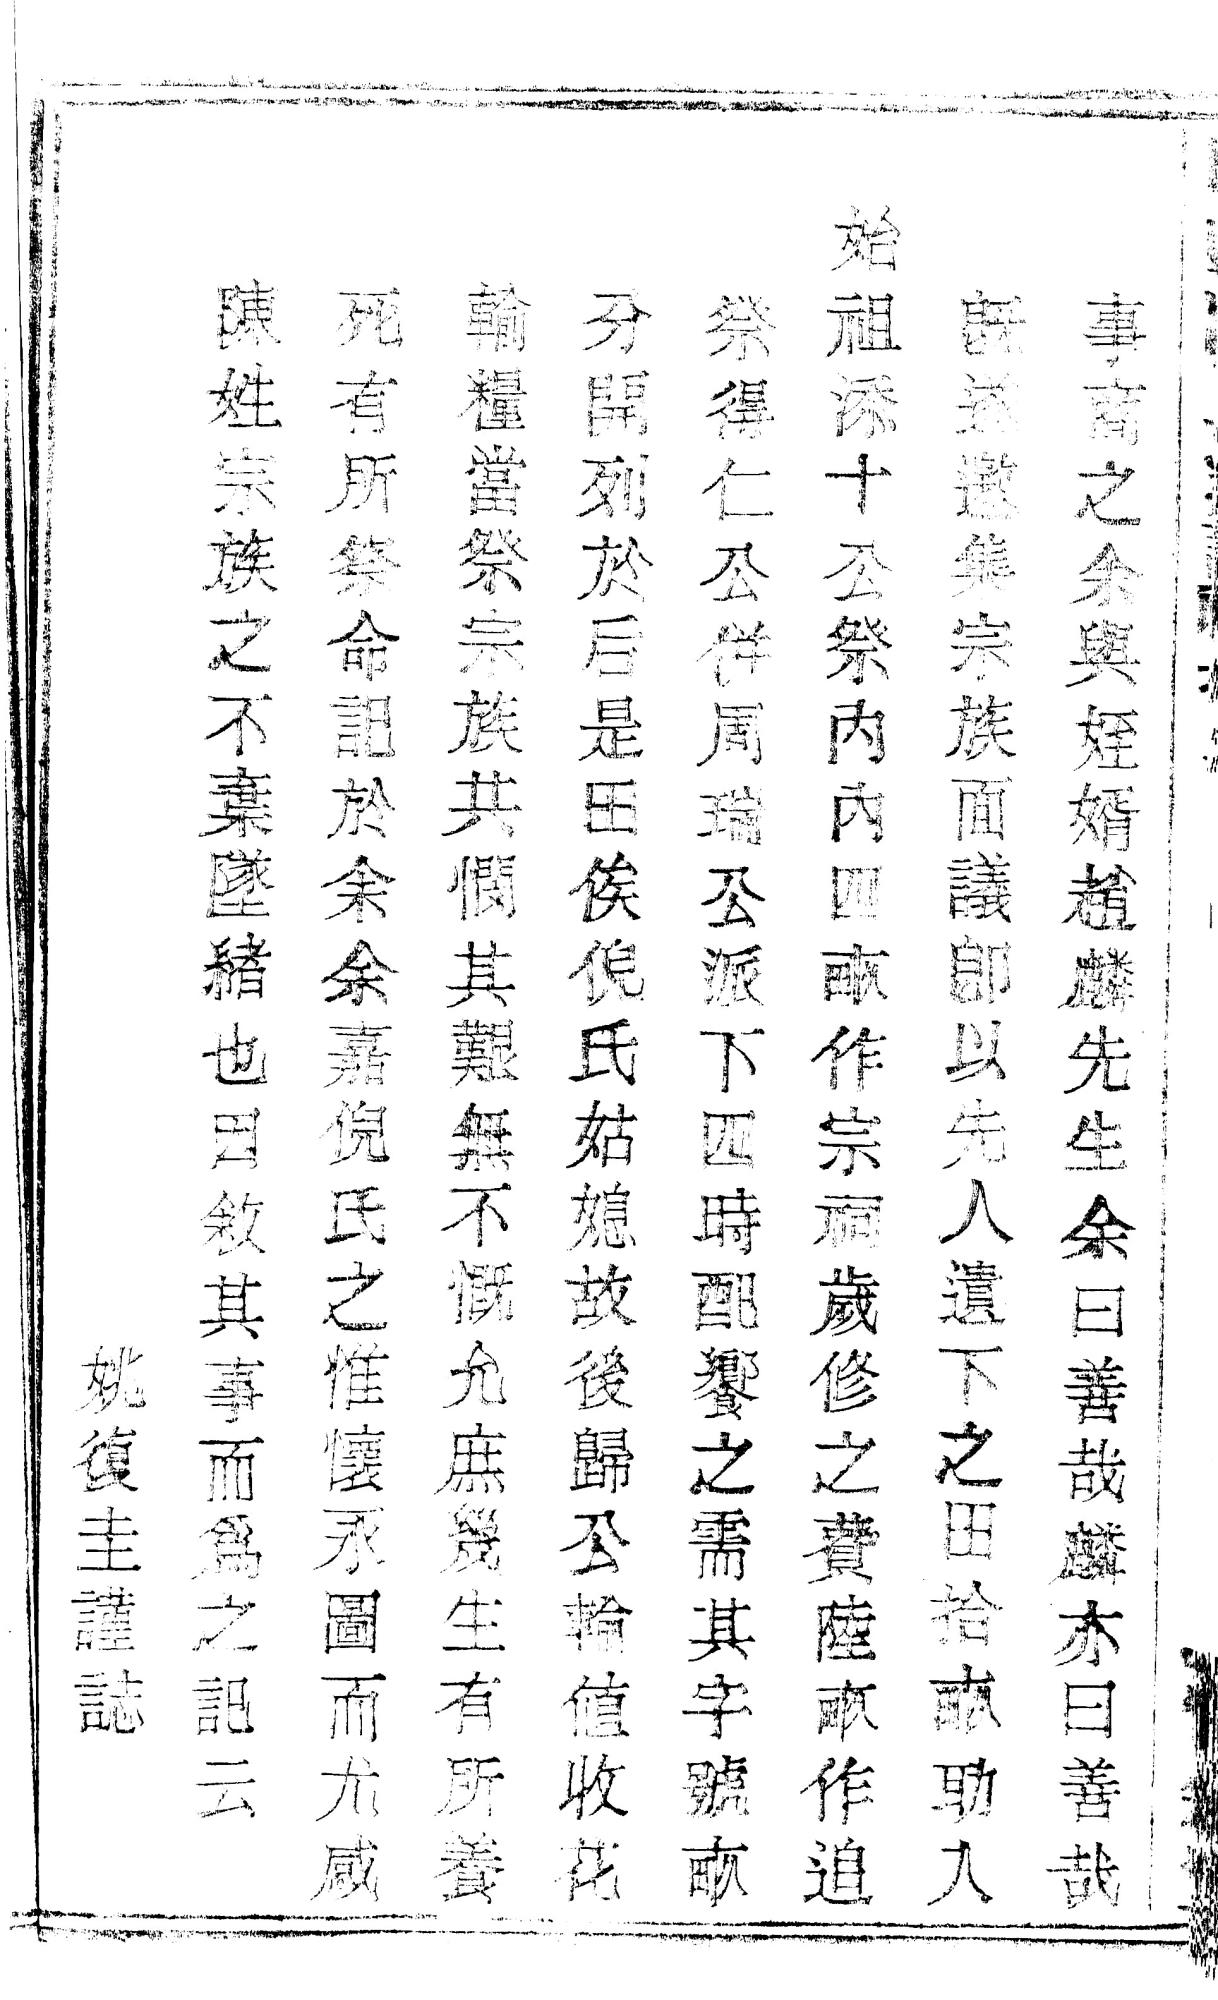 事商之余與姪婿趙麟先生余曰善哉麟亦曰善哉
既遂邀集宗族面議即以先人遺下之田拾畝助入
始祖添十公祭內內四畝作宗祠歲修之費陸畝作追
祭得仁公併周瑞公派下四時配饗之需其字號畝
分開列於后是田俟倪氏姑媳故後歸公輪值收花
輸糧當祭宗族共憫其艱無不慨允庶幾生有所養
死有所祭命記於余余嘉倪氏之惟懷永圖而尤感
陳姓宗族之不棄墜緒也因敘其事而為之記云
姚復圭謹誌